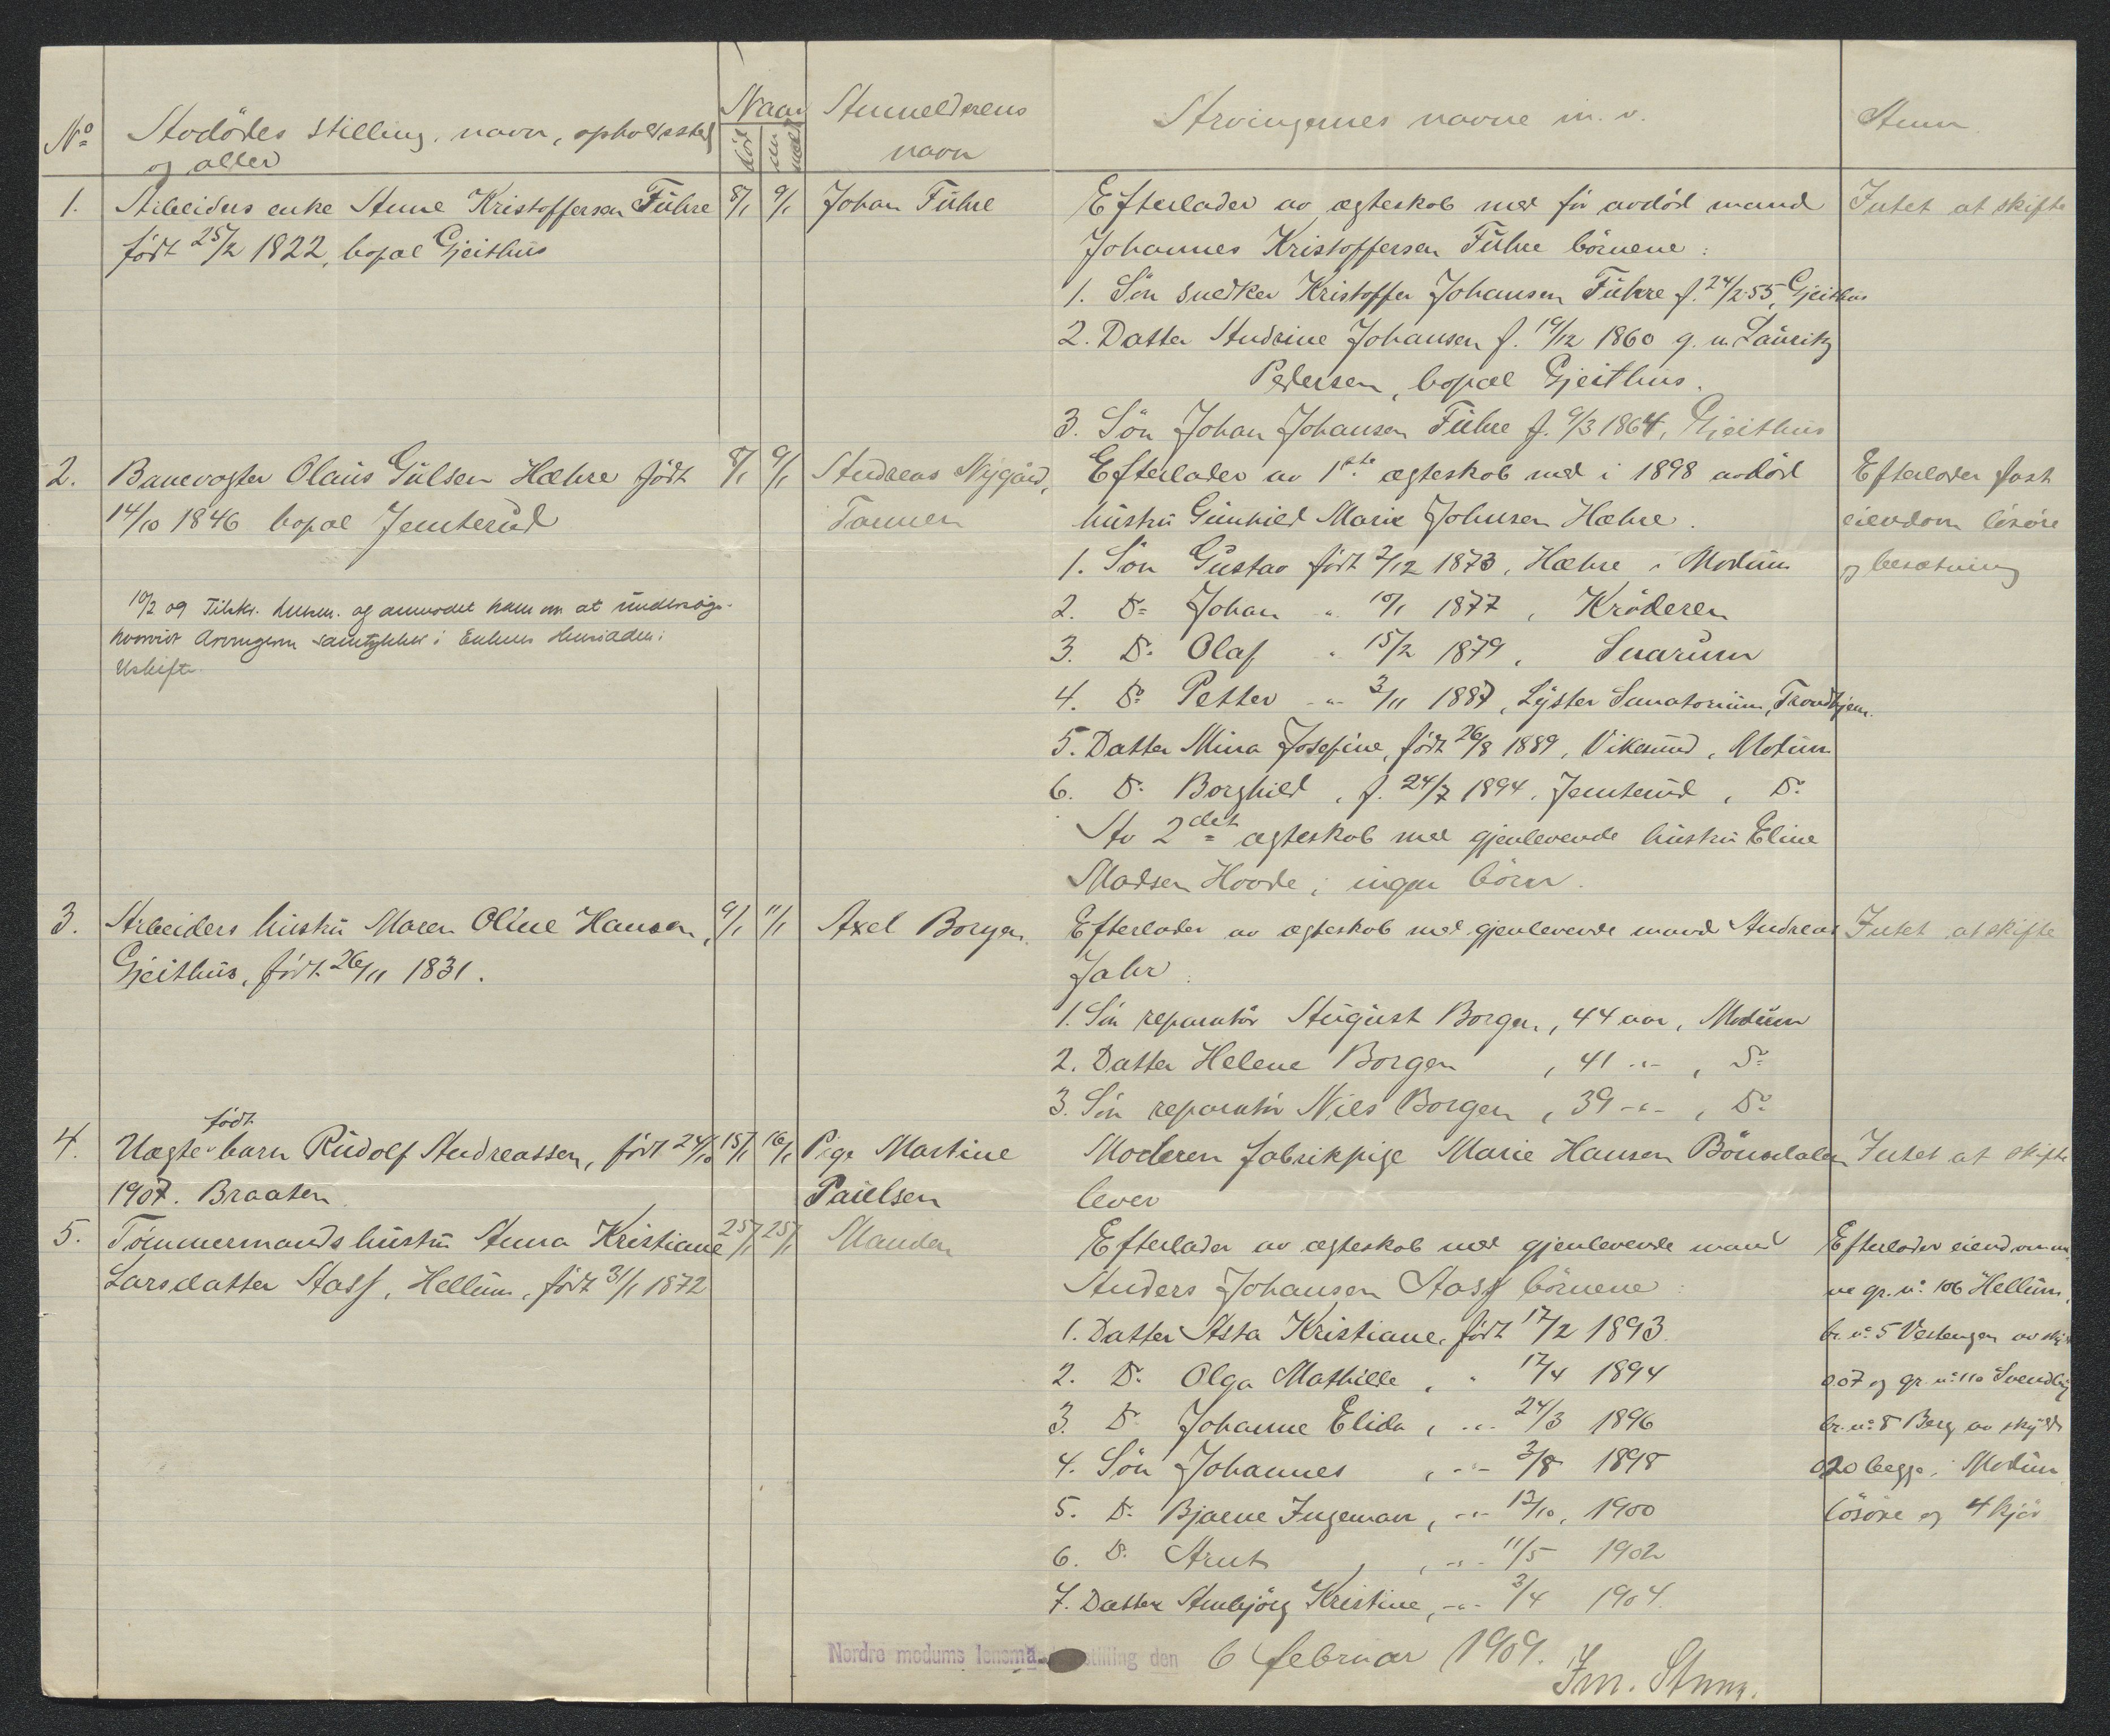 No Avdödes stilling, navn, opholdssted og alder
Naar
död
an meldt
Anmelderens navn
Arvingernes navne m. v.
Anm.
1. Arbeiders enke Anne Kristoffersen Führe
født 25/2 1822, bopæl Gjeithus
8/1 9/1 Johan Führe
Efterlader av ægteskab med før avdöd mand
Johannes Kristoffersen Führe börnene:
1. Sön snedker Kristoffer Johansen Führe f. 24/2 55, Gjeithus
2. Datter Andrine Johansen f. 19/12 1860 g. m. Lauritz
Pedersen, bopæl Gjeithus.
3. Sön Johan Johansen Führe f. 9/3 1864, Gjeithus
Intet at skifte
2. Banevogter Olaus Gulsen Hæhre født
14/10 1846 bopæl Jemterud
10/2 09 Tilskr. lensm. og anmodet ham om at undersøge
hvorvidt Arvingerne samtykker i Enkens Hensidden i
Uskifte.
8/1 9/1 Andreas Nygård,
Tannen
Efterlader av 1ste ægteskab med i 1898 avdöd
hustru Gunhild Marie Johnsen Hæhre.
1. Sön Gustav født 2/12 1873, Hæhre i Modum
2. Do Johan " 10/1 1877, Kröderen
3. Do Olaf " 15/2 1879, Snarum
4. Do Petter -"- 3/11 1887, Lyster Sanatorium, Trondhjem.
5. Datter Mina Josefine, født 26/8 1889, Vikersund, Modum
6. Do Borghild, f. 24/7 1894, Jemterud, Do
Av 2det ægteskab med gjenlevende hustru Eline
Madsen Hovde; ingen börn.
Efterlader fast
eiendom lösöre
og besætning
3. Arbeiders hustru Maren Oline Hansen,
Gjeithus, født 26/11 1831.
9/1 11/1 Axel Borgen.
Efterlader av ægteskab med gjenlevende mand Andreas
Jahr.
1. Sön reparatör August Borgen, 44 aar, Modum
2. Datter Helene Borgen, 41 -"-, Do
3. Sön reparatör Nils Borgen, 39 -"-, Do
Intet at skifte
4. Uægte født barn Rudolf Andreassen, født 24/10
1907. Braaten.
15/1 16/1 Pige Martine
Paulsen
Moderen fabrikpige Marie Hansen Bönsdalen
lever
Intet at skifte
5. Tömmermands hustru Anna Kristiane
Larsdatter Aass, Hellum, født 31/1 1872
25/1 25/1 Manden
Efterlader av ægteskab med gjenlevende mand
Anders Johansen Aass börnene:
1. Datter Asta Kristiane, født 17/2 1893.
2. Do Olga Mathilde, " 17/4 1894
3. Do Johanne Elida, -"- 24/3 1896
4. Sön Johannes, -"- 3/8 1898
5. Do Bjarne Ingeman, -"- 12/10, 1900
6. Do Arnt, -"- 11/5 1902
7. Datter Annbjörg Kristine, -"- 3/4 1904.
Efterlader eiendomme
ne gr. no 106 Hellum,
br. no 5 Vestengen av skyld
0 07 og gr. no 110
br. no 8 Berg av skyld
0 20 begge i Modum
lösöre og 4 kjör
Nordre modums lensmannsbestilling den 6 februar 1909.